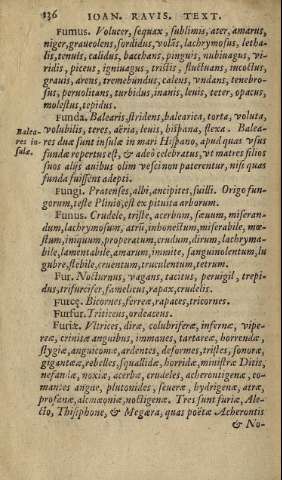 136 IOAN. RAVIS. TEXT.
Fumus. Volucer, sequax, sublimis, ater, amarus,
niger, graueolens, sordidus, volãs, lachrymosus, letha-
lis, tenuis, calidus, bacchans, pinguis, nubiuagus, vi-
ridis, piceus, igniuagus, tristis, fluctuans, incoctus,
grauis, arens, tremebundus, calens, vndans, tenebro-
sus, peruolitans, turbidus, inanis, leuis, teter, opacus,
molestus, tepidus.
Funda. Balearis, stridens, balearica, torta, voluta,
volubilis, teres, aëria, leuis, hispana, flexa. Balea-
res duæ sunt insulæ in mari Hispano, apud quas vsus
fundæ repertus est, & adeò celebratus, vt matres filios
suos alijs antibus olim vescinon paterentur, nisi quas
funda fuissent adepti.
Balea-
res in-
sulæ.
Fungi. Pratenses, albi, ancipites, suilli. Origo fun-
gorum, teste Plinio, est ex pituita arborum.
Funus. Crudele, triste, acerbum, sæuum, miseran-
dum, lachrymosum, atrū, inhonestum, miserabile, mœ-
stum, iniquum, properatum, crudum, dirum, lachryma-
bile, lamentabile, amarum, immite, sanguinolentum, lu
gubre, flebile, cruentum, truculentum, tetrum.
Fur. Nocturnus, vagans, tacitus, peruigil, trepi-
dus, trifurcifer, famelicus, rapax, crudelis.
Furcę. Bicornes, ferreæ, rapaces, tricornes.
Furfur. Triticeus, ordeaceus.
Furiæ. Vltrices, diræ, colubriferæ, infernæ, vipe-
reæ, crinitæ anguibus, immanes, tartareæ, horrendæ,
stygiæ, anguicomæ, ardentes, deformes, tristes, sonoræ,
giganteæ, rebelles, squallidæ, horridæ, ministræ Ditis,
nefandæ, noxiæ, acerbæ, crudeles, acherontigenæ, co-
mantes angue, plutonides, seueræ, hydrigenæ, atræ,
profanæ, alcmæoniæ, noctigenæ. Tres sunt furiæ, Ale-
cto, Thisiphone, & Megæra, quas poëtæ Acherontis
& No-